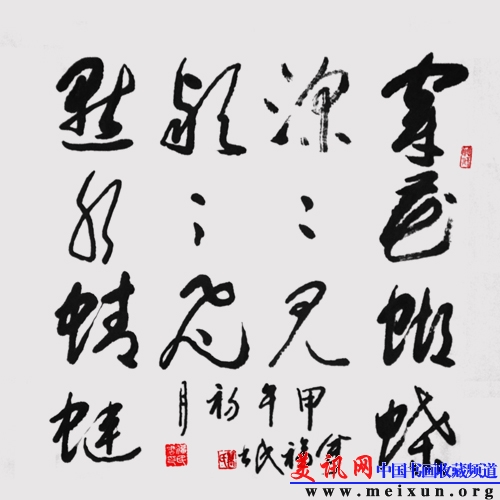 穿花蝴蝶
深〻见
點水蜻蜓
款〻飞
甲午初月
福民
美讯网 中国书画收藏频道
www.meixun.org